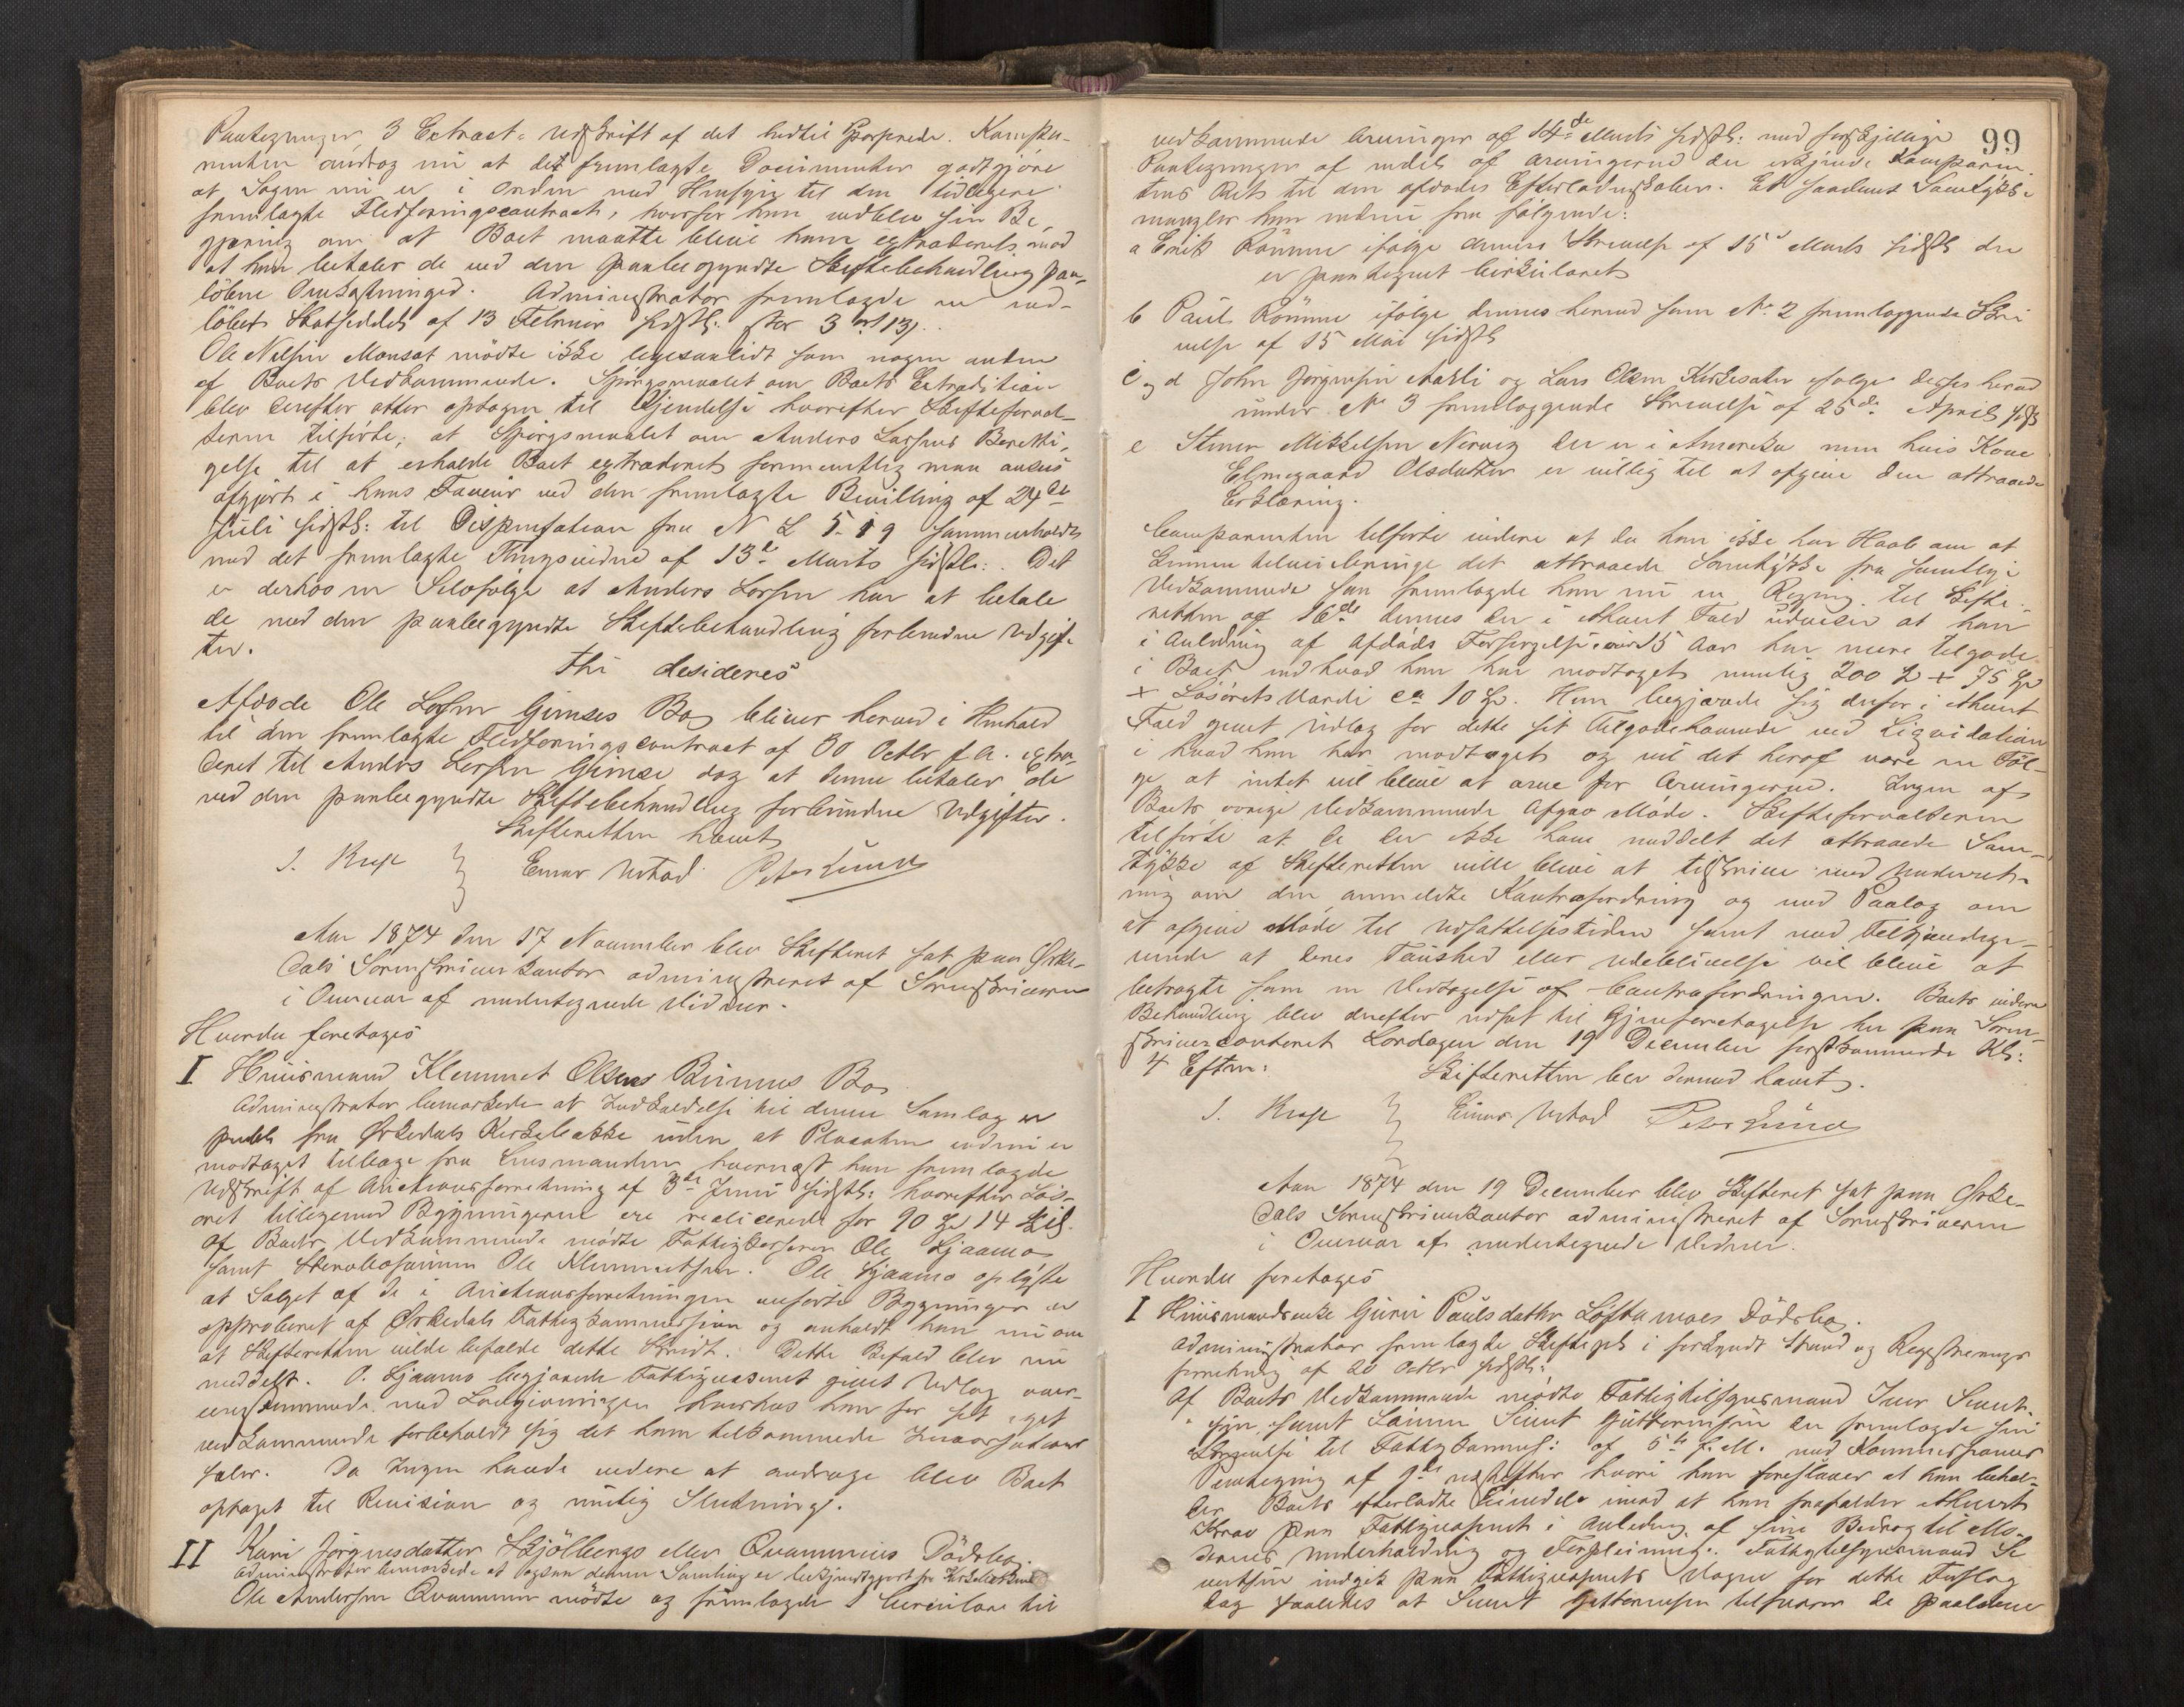 Paategninger, 3 Extract-Udskrift af det hidtil Passerede. Kompa-
renten androg nu at det fremlagte Documenter godtgjöre
at Sagen nu er i Orden med Hensyn til den tidligere
fremlagte Fledföringscontract, hvorfor han indblev sin Be-
gjæring om at Boet maatte blive ham extraderet mod
at han betaler de ved den paabegyndte Skiftebehandling paa-
löbne Omkostninger. Administrator fremlagde en ind-
löbet Skatseddel af 13 Februar sidstl: stor 3 ort 13 s.
Ole Nilsen Monsat mödte ikke ligesaalidt som nogen anden
af Boets Vedkommende. Spörgsmaalet om Boets Extradition
blev derefter atter optagen til Kjendelse hvorefter Skifteforval-
teren tilförte; at Spörgsmaalet om Anders Larsens Beretti-
gelse til at erholde Boet extraderet formentlig maa ansees
afgjort i hans Faveur ved den fremlagte Bevilling af 24de
Juli sidstl: til Dispensation fra N L 5-1-9 sammenholdt
med det fremlagte Thingsvidne af 13de Marts sidstl:. Det
er derhos en Selvfölge at Anders Larsen har at betale
de med den paabegyndte Skiftebehandling forbundne Udgif-
ter.
Thi desideres
Afdöde Ole Larsen Gimses Bo bliver herved i Henhold
til den fremlagte Fledföringscontract af 30 Octbr f. A. extra-
deret til Anders Larsen Gimse, dog at denne betaler de
ved den paabegyndte Skiftebehandling forbundne Udgifter.
Skifteretten hævet
J. Krag } Einar Urstad Peter Lund
Aar 1874 den 17 November blev Skifteret sat paa Orke-
dals Sorenskriverkontor administreret af Sorenskriveren
i Overvær af undertegnede Vidner.
Hvorda foretages
I Huusmand Klemmet Olsens Bo
Administrator bemærkede at Indkaldelse til denne Samling er
sendt fra Örkedals Kirkebakke uden at Placaten endnu er
modtaget tilbage fra Lensmanden, hvornæst han fremlagde
Udskrift af Auctionsforretning af 3de Juni sidstl: hvorefter Lös-
öret tilligemed Bygningerne ere realiserede for 90 Spd 14 Skil.
Af Boets Vedkommende mödte Fattigkasserer Ole Ljaamo
samt Stervbosönnen Ole Klemmetsen. Ole Ljaamo oplyste
at Salget af de i Auctionsforretningen anförte Bygninger er
approberet af Örkedals Fattigkommission og anholdt han nu om
at Skifteretten vilde befale dette Skridt. Dette Befald blev nu
meddelt. O. Ljaamo begjærede Fattigvæsenet givet Udlæg over-
eensstemmende med Lovgivningen hvorhos han for sit eget
vedkommende forbeholdt sig det ham tilkommende Incassations
salær. Da Ingen havde videre at andrage blev Boet
optaget til Revision og mulig Slutning.
II Kari Jörgensdatter Skjölbergs eller Qvammens Dödsbo.
Administrator bemærkede at ogsaa denne Samling er bekjendtgjort fra Kirkebakken
Ole Andersen Qvammen mödte og fremlagde 1 Circulære til
99
vedkommende Arvinger af 14de Marts sidstl: med forskjellige
Paategninger af endel af Arvingerne der erkjende Komparen-
tens Ret til den afdödes Efterladenskaber. Et saadant Samtykke
mangler han endnu fra fölgende:
a Erik Römme ifölge dennes Skrivelse af 15de Marts sidstl der
er paategnet Cirkulæret
b Paul Römme ifölge dennes herved som No 2 fremlæggende Skri
velse af 15 Mai sidstl
c og d John Jörgensen Aarli og Lars Olsen Kirkesæter ifölge deres herved
under No 3 fremlæggende Skrivelse af 25de April sidstl
e Steiner Mikkelsen Nervig der er i Amerika men hvis Kone
Olsdatter er villig til at afgive den attraaede
Erklæring.
Comparenten tilförte videre at da han ikke har Haab om at
kunne tilveiebringe det attraaede Samtykke fra samtlige
Vedkommende saa fremlagde han nu en Regning til Skifte-
retten af 16de dennes der i ethvert Fald udviser at han
i Anledning af Afdödes Forsörgelse i over 15 Aar har mere tilgode
i Boet end hvad han har modtaget nemlig 200 Spd + 75 Spd
+ Lösörets Værdi ca 10 Spd. Han begjærede sig derfor i ethvert
Fald givet Udlæg for dette sit Tilgodehavende ved Liqvidation
i hvad han har modtaget og vil det heraf være en Föl-
ge at intet vil blive at arve for Arvingerne. Ingen af
Boets övrige Vedkommende afgav Möde. Skifteforvalteren
tilförte at de der ikke have meddelt det attraaede Sam-
tykke af Skifteretten ville blive at tilskrive med Underret-
ning om den anmeldte Kontrafordring og med Paalæg om
at afgive Möde til Udsættelsestiden samt med Tilkjendegi-
vende at deres Taushed eller Udeblivelse vil blive at
betragte som en Vedtagelse af Contrafordringen. Boets videre
Behandling blev derefter udsat til Gjenforetagelse her paa Soren-
skrivercontoret Lördagen den 19 December förstkommende Kl:
4 Eftm: Skifteretten blev dermed hævet.
J. Krag } Einar Urstad Peter Lund
Aar 1874 den 19 December blev Skifteret sat paa Orke-
dals Sorenskriverkontor administreret af Sorenskriveren
i Overvær af undertegnede Vidner.
Hvorda foretages
I Huusmandsenke Guru Paulsdatter Löftamoes Dödsbo.
Administrator fremlagde Skiftepl i forkyndt Stand og Registrerings
forretning af 20 Octbr sidstl:
Af Boets Vedkommende mödte Fattigtilsynsmand Iver Sivert-
sen samt Sönnen Sivert Guttormsen der fremlagde sin
Skrivelse til Fattigkommis: af 5te f. M. med Kommissionens
Paategning af 9de hvori han foreslaaer at han behol-
der Boets efterladte Eiendele imod at han frafalder ethvert
Krav paa Fattigvæsenet i Anledning af sine Bidrag til Mo-
derens Underholdning og Forpleining. Fattigtilsynsmand Si
vertsen indgik paa Fattigvæsenets Vegne for dette Forslag
dog saaledes at Sivert Guttormsen tilsvarer de paalöbne